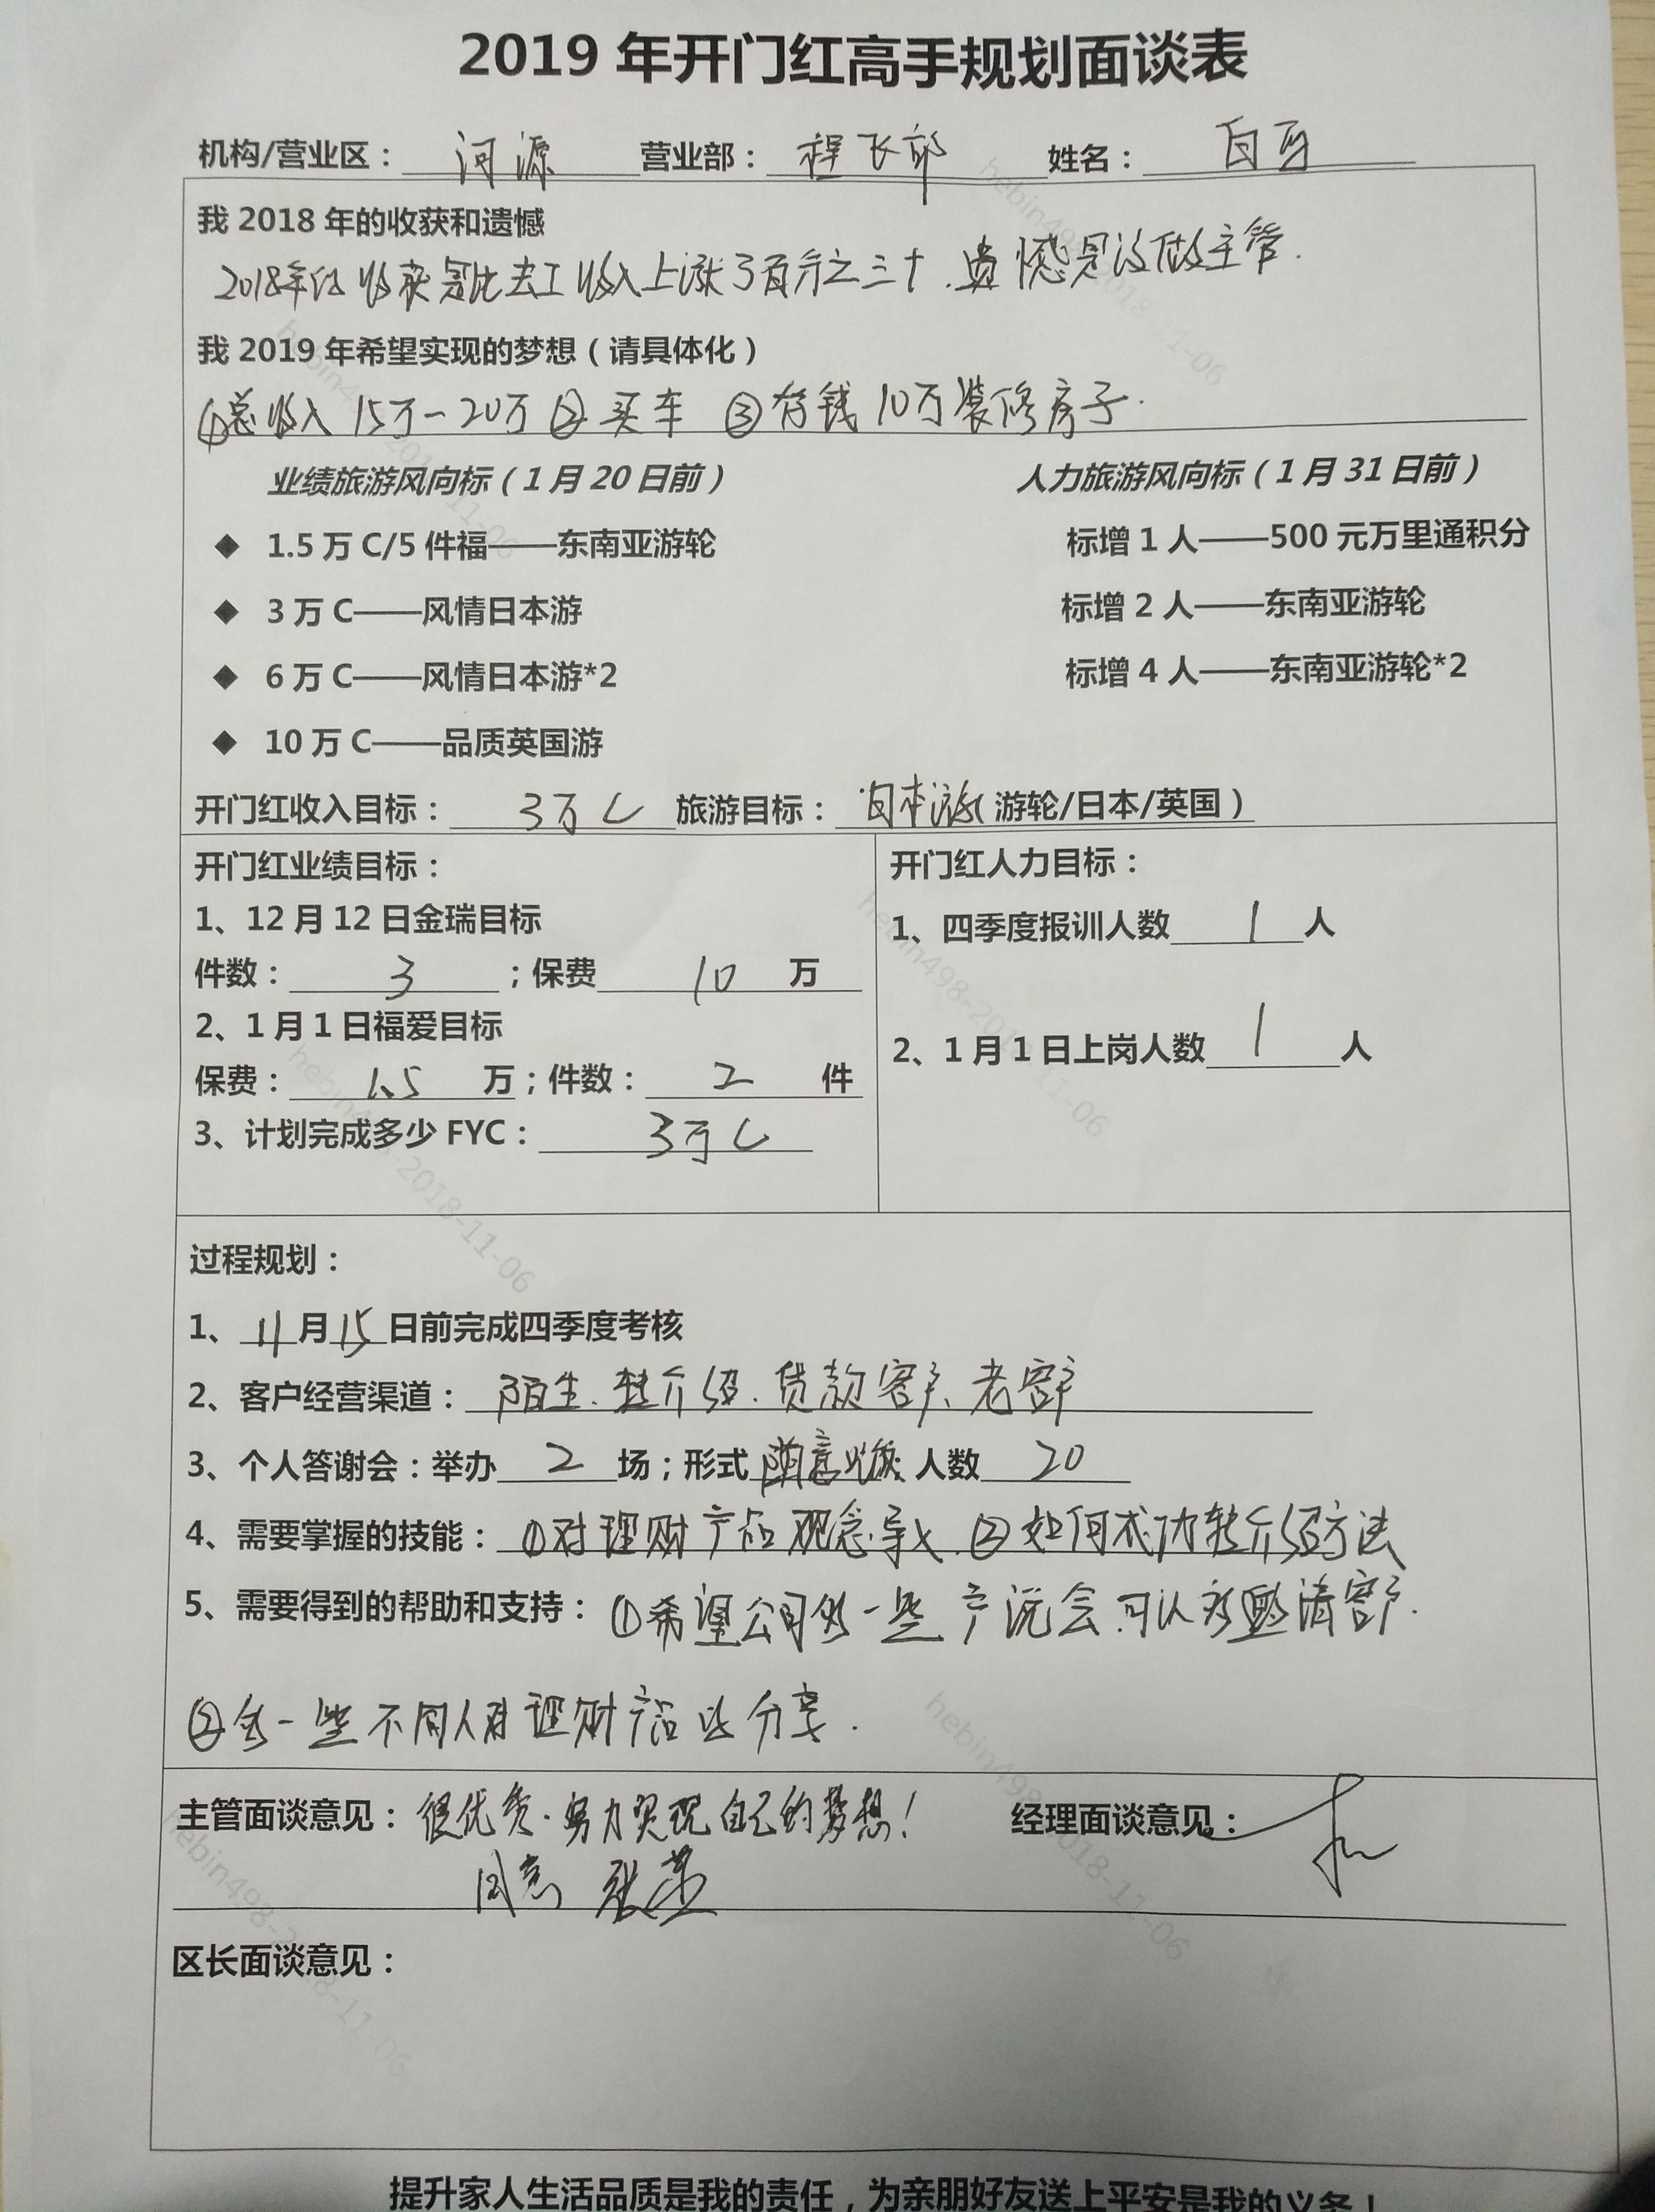 2019 年开门红高手规划面谈表
机构/营业区： 河源 营业部： 程飞部 姓名：
我 2018 年的收获和遗憾
2018年的收获是比去 收入上涨了百分之三十.遗憾是没做主管.
我 2019 年希望实现的梦想（请具体化）
①总收入 15万一20万 ②买车 ③存钱10万装修房子.
业绩旅游风向标（1 月 20 日前） 人力旅游风向标（1 月 31 日前）
◆ 1.5 万 C/5 件福——东南亚游轮 标增 1 人——500 元万里通积分
◆ 3 万 C——风情日本游 标增 2 人——东南亚游轮
◆ 6 万 C——风情日本游*2 标增 4 人——东南亚游轮*2
◆ 10 万 C——品质英国游
开门红收入目标： 3万C 旅游目标： 日本游（游轮/日本/英国）
开门红业绩目标： 开门红人力目标：
1、12 月 12 日金瑞目标 1、四季度报训人数 1 人
件数： 3 ；保费 10 万
2、1 月 1 日福爱目标 2、1 月 1 日上岗人数 1 人
保费： 1.5 万；件数： 2 件
3、计划完成多少 FYC： 3万C
过程规划：
1、 11 月 15 日前完成四季度考核
2、客户经营渠道： 陌生.转介绍.贷款客户、老客户
3、个人答谢会：举办 2 场；形式 人数 20
4、需要掌握的技能： ①对理财产品观念导入.②如何成功转介绍方法
5、需要得到的帮助和支持： ①希望公司多一些产说会.可以 邀请客户.
②多一些不同人对理财产品 分享.
主管面谈意见： 很优秀.努力实现自己的梦想！ 经理面谈意见：
同意
区长面谈意见：
提升家人生活品质是我的责任，为亲朋好友送上平安是我的义务！
hebin498-2018-11-06
hebin498-2018-11-06
hebin498-2018-11-06
hebin498-2018-11-06
hebin498-2018-11-06
hebin498-2018-11-06